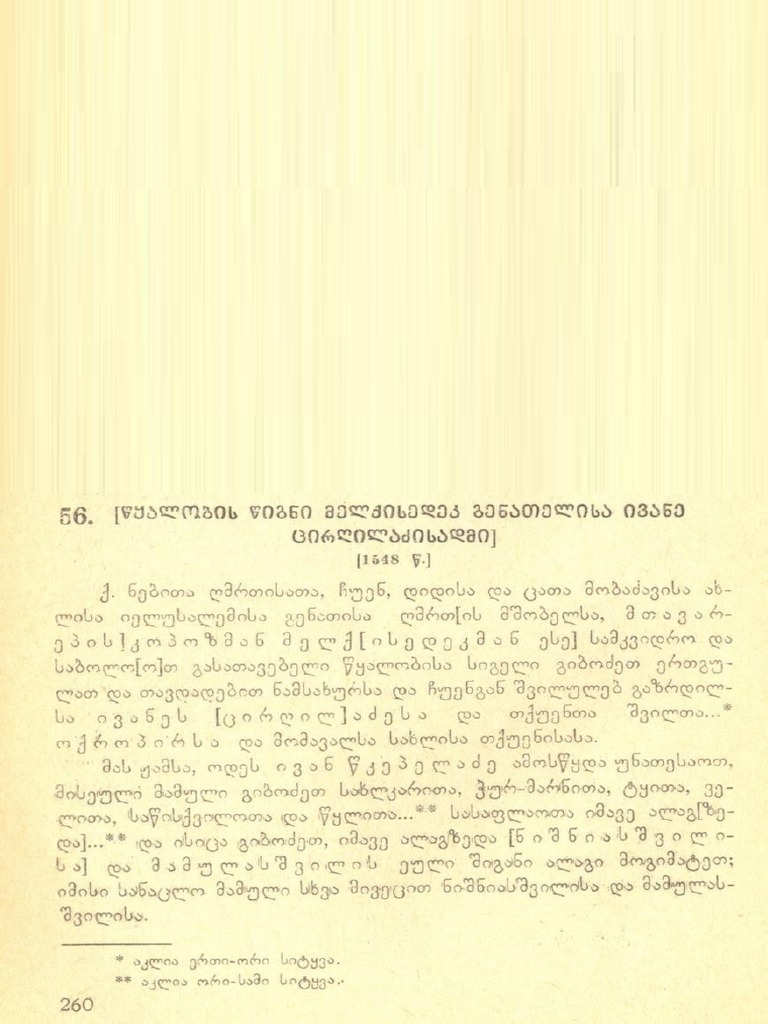 56. [წყალობის წიგნი მელქისედეკ გენათელისა ივანე
ცირღილაძისადმი]
[1548 წ.]
ქ. ნებითა ღმრთისათა, ჩუენ, დიდისა და ცათა მობაძავისა ახ-
ლისა იელუსალემისა გენათისა ღმრთ[ის მშობელსა, მთავარ-
ეპის]კოპოზმან მელქ[ისედეკმან ესე] სამკვიდრო და
საბოლო[ო]თ გასათავებელი წყალობისა სიგელი გიბოძეთ ერთგუ-
ლათ და თავდადებით ნამსახურსა და ჩუენგან შვილულებ გაზრდილ-
სა ივანეს [ცირღილ]აძესა და თქუენთა შვილთა...*
ოქროპირსა და მომავალსა სახლისა თქუენისასა.
მას ჟამსა, ოდეს ივან წკეპელაძე ამოსწყდა უნათესაოთ,
მისეული მამული გიბოძეთ სახლკარითა, ჭურ-მარნითა, ტყითა, ვე-
ლითა, საწისქვილოთა და წყლითა...** სასაფლაოთა იმავე ალაგ[ზე-
და]...** და ისიცა გიბოძეთ, იმავე ალაგზედა [ნიშნიასშვილი-
სა] და მამულასშვილის ეული შიგანი ალაგი მოგიმატეთ;
იმისი სანაცლო მამული სხვა მივეცით ნიშნიასშვილისა და მამულას-
შვილისა.
* აკლია ერთი-ორი სიტყვა.
** აკლია ორი-სამი სიტყვა.
260